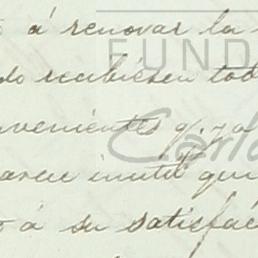 á renovar la
do recibiésen tod
nvenientes q. ya
inutil que
á su satisfac
FUND
Carlo